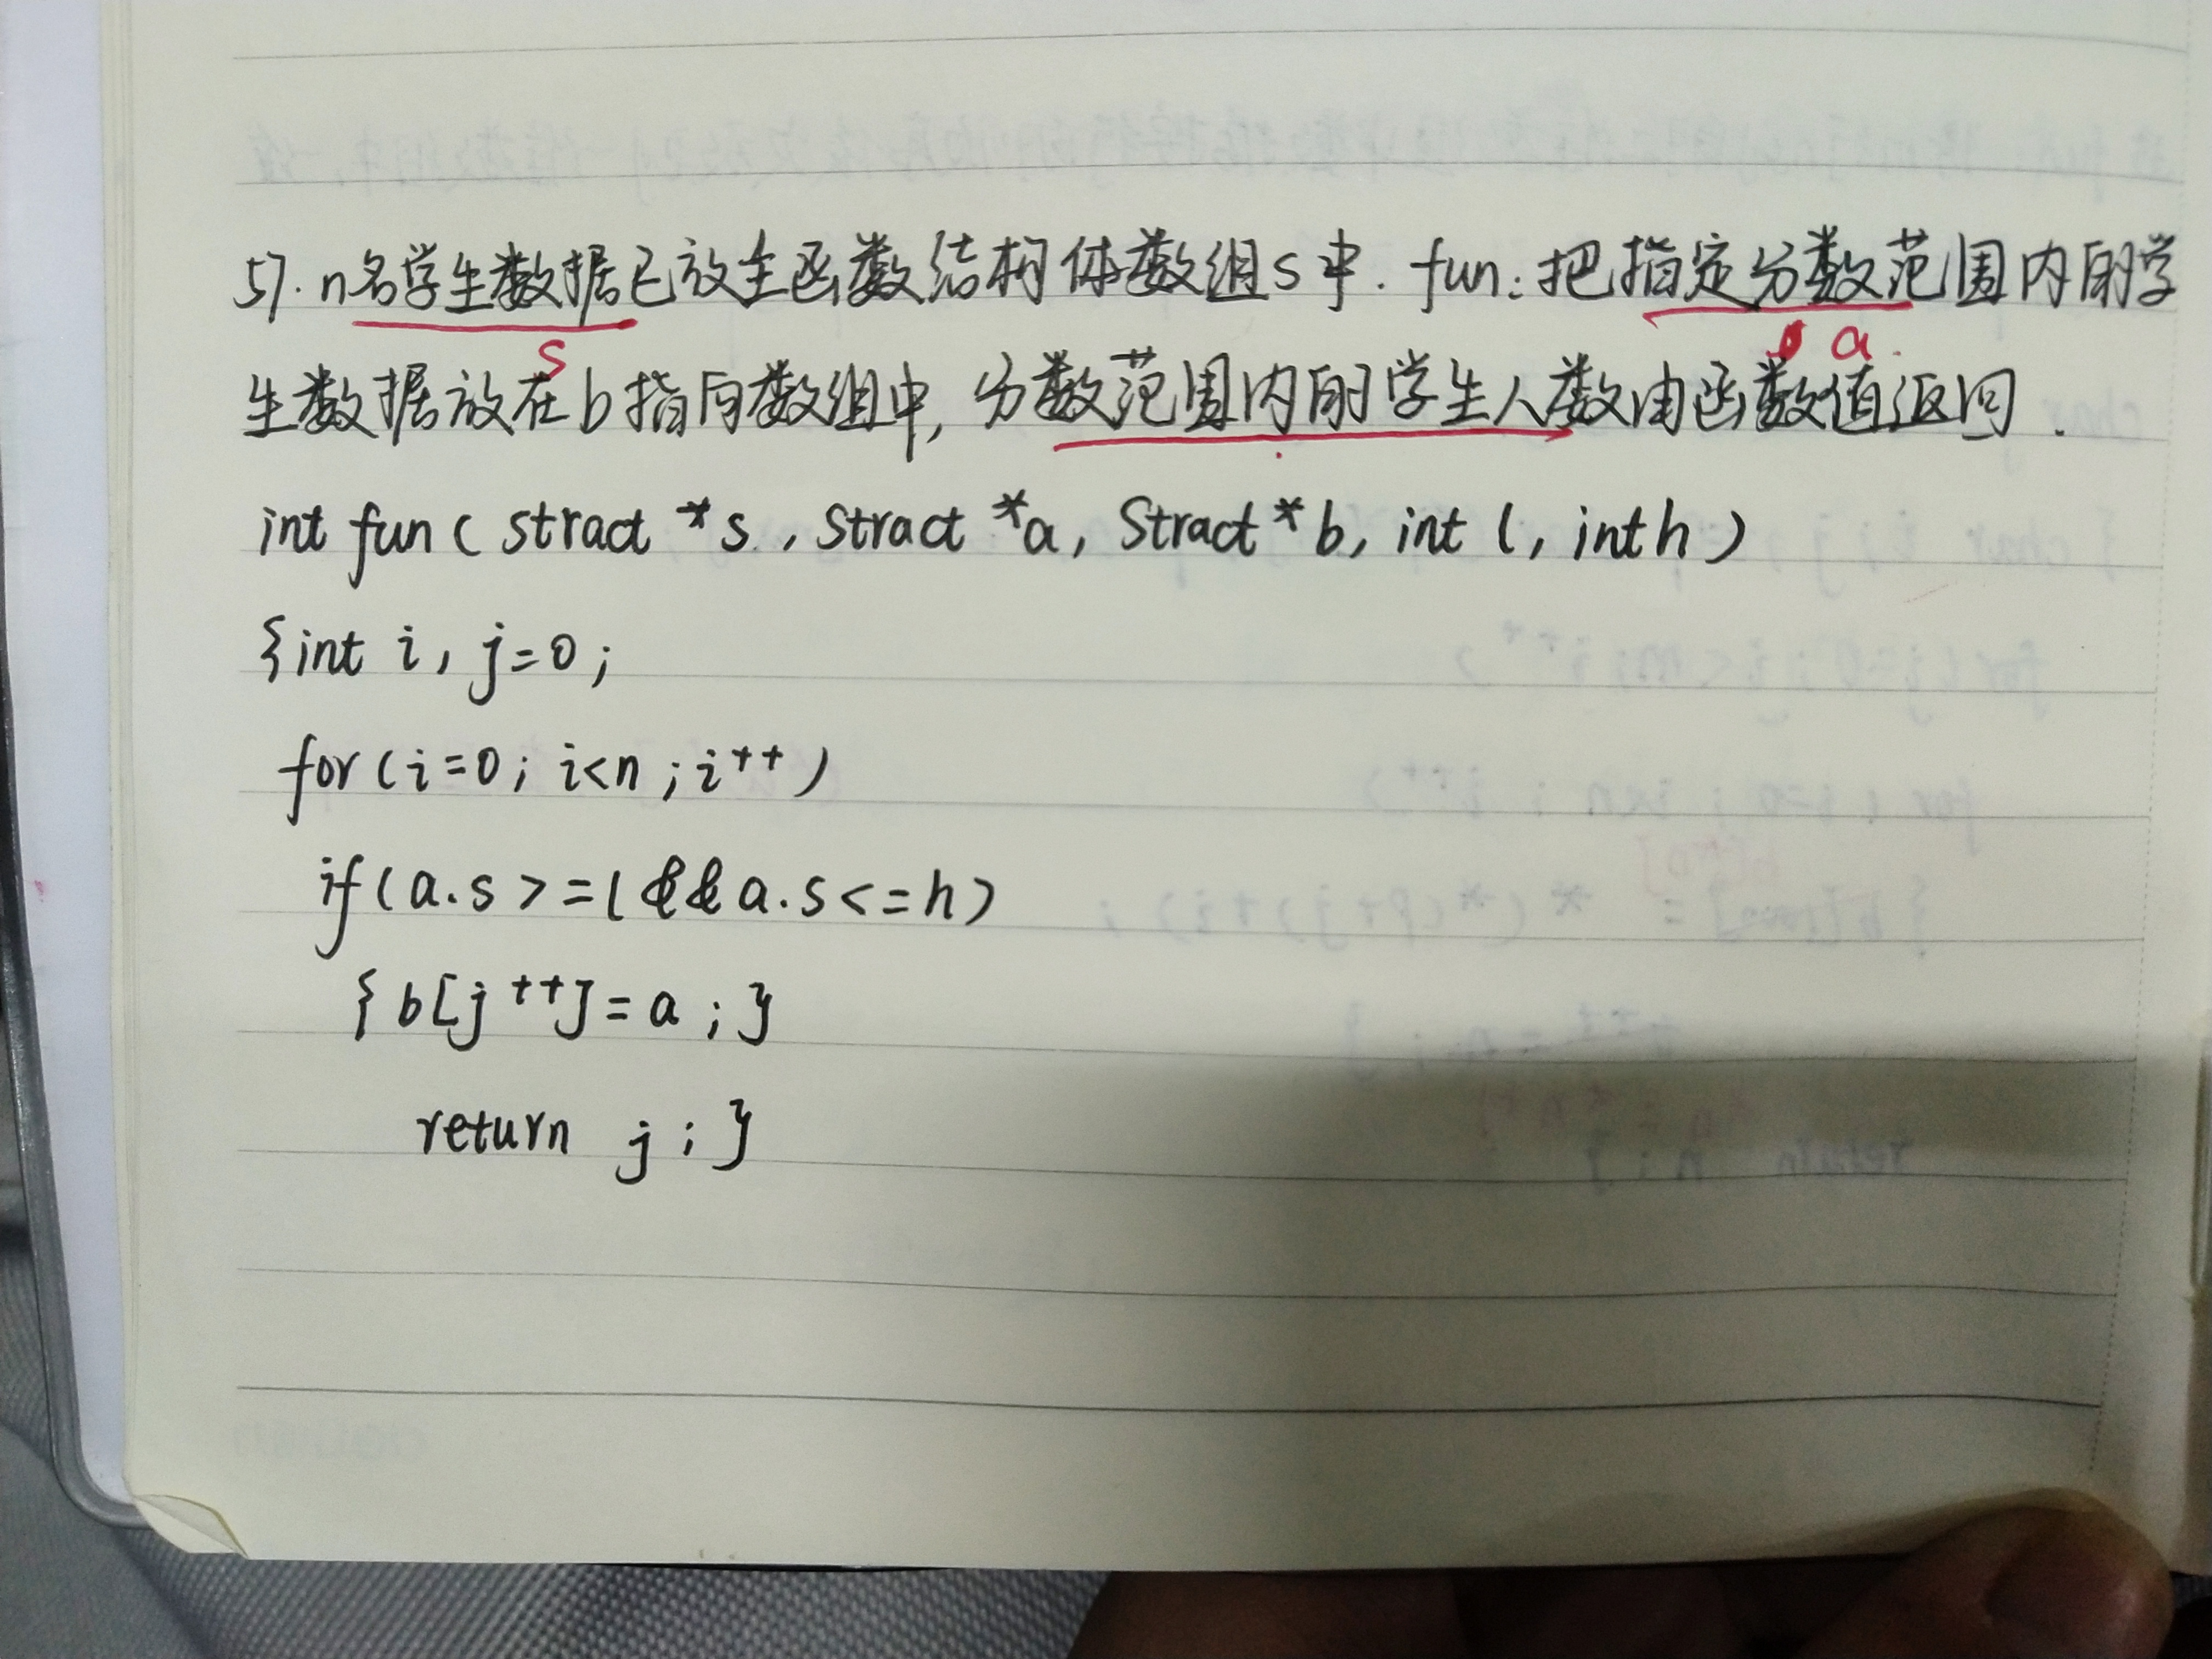 57. n名学生数据已放主函数结构体数组s中. fun:把指定分数范围内的学
s
a.
生数据放在b指向数组中,分数范围内的学生人数由函数值返回.
int fun( struct *s, Struct *a, Struct *b, int l, int h)
{int i, j=0;
for(i=0; i<n; i++)
if(a.s>=l&&a.s<=h)
{b[j++]=a;}
return j;}